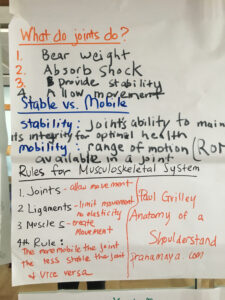 What do joints do?
1. Bear weight
2. Absorb shock
3. Provide stability
4. Allow movement
Stable vs. Mobile
stability: joints ability to main
its integrity for optimal health
mobility: range of motion (ROM
available in a joint
Rules for Musculoskeletal System
1 Joints - allow movement
2 Ligaments - limit movement
no elasticity
3 Muscles - create
movement
4th Rule:
The more mobile the joint
the less stable the joint
& vice versa
Paul Grilley
Anatomy of a
Shoulderstand
pranamaya.com